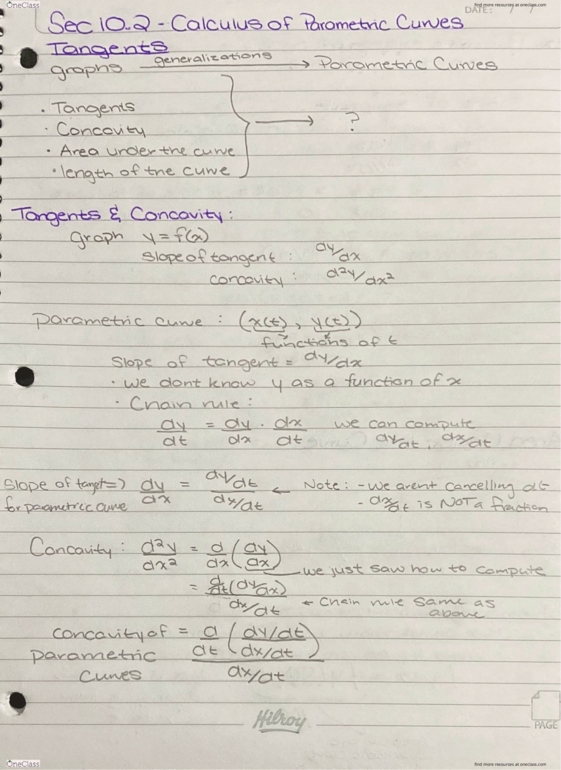 OneClass
find more resources at oneclass.com
DATE:
Sec 10.2 - Calculus of Parametric Curves
Tangents
graphs generalizations → Parametric Curves
· Tangents
· Concavity → ?
· Area under the curve
· length of the curve
Tangents & Concavity:
Graph y = f(x)
Slope of tangent : dy/dx
concavity : d²y/dx²
Parametric curve : (x(t), y(t))
functions of t
Slope of tangent = dy/dx
· we dont know y as a function of x
· Chain rule:
dy/dt = dy/dx · dx/dt we can compute
dy/dt, dx/dt
Slope of tanget => dy/dx = (dy/dt)/(dx/dt) ← Note: - we arent cancelling dt
for parametric curve - dx/dt is NOT a fraction
Concavity : d²y/dx² = d/dx (dy/dx)
we just saw how to compute
= (d/dt(dy/dx))/(dx/dt) ← Chain rule same as
above
concavity of = (d/dt ((dy/dt)/(dx/dt)))/(dx/dt)
parametric
curves
Hilroy
PAGE
OneClass
find more resources at oneclass.com